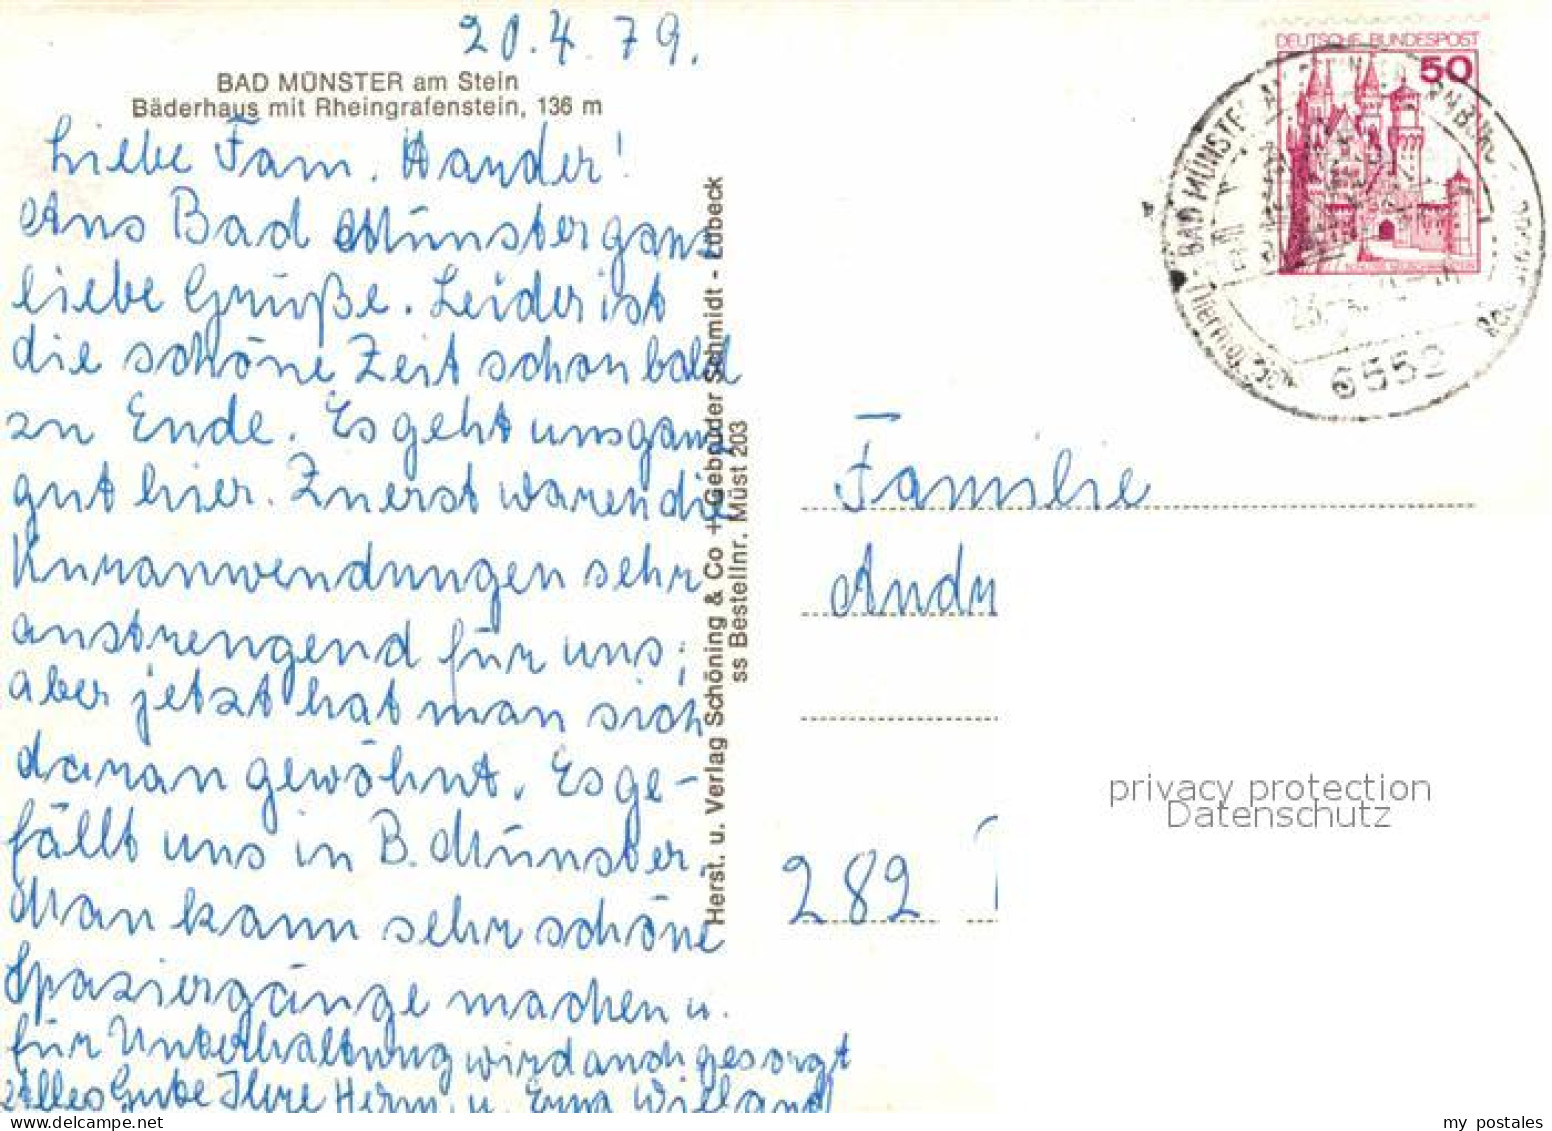 20.4.79.
BAD MÜNSTER am Stein
Bäderhaus mit Rheingrafenstein, 136 m
Liebe Fam. Hander!
Aus Bad Münster ganz
liebe Grüße. Leider ist
die schöne Zeit schon bald
zu Ende. Es geht uns ganz
gut hier. Zuerst waren die
Kuranwendungen sehr
anstrengend für uns;
aber jetzt hat man sich
daran gewöhnt. Es ge-
fällt uns in B. Münster.
Man kann sehr schöne
Spaziergänge machen u.
für Unterhaltung wird auch gesorgt
Alles Gute Ihre Herm. u. Erna Wieland
Herst. u. Verlag Schöning & Co + Gebrüder Schmidt - Lübeck
ss Bestellnr. Müst 203
DEUTSCHE BUNDESPOST
50
BAD MÜNSTER AM STEIN
6552
Familie
Andr
282
privacy protection
Datenschutz
my postales